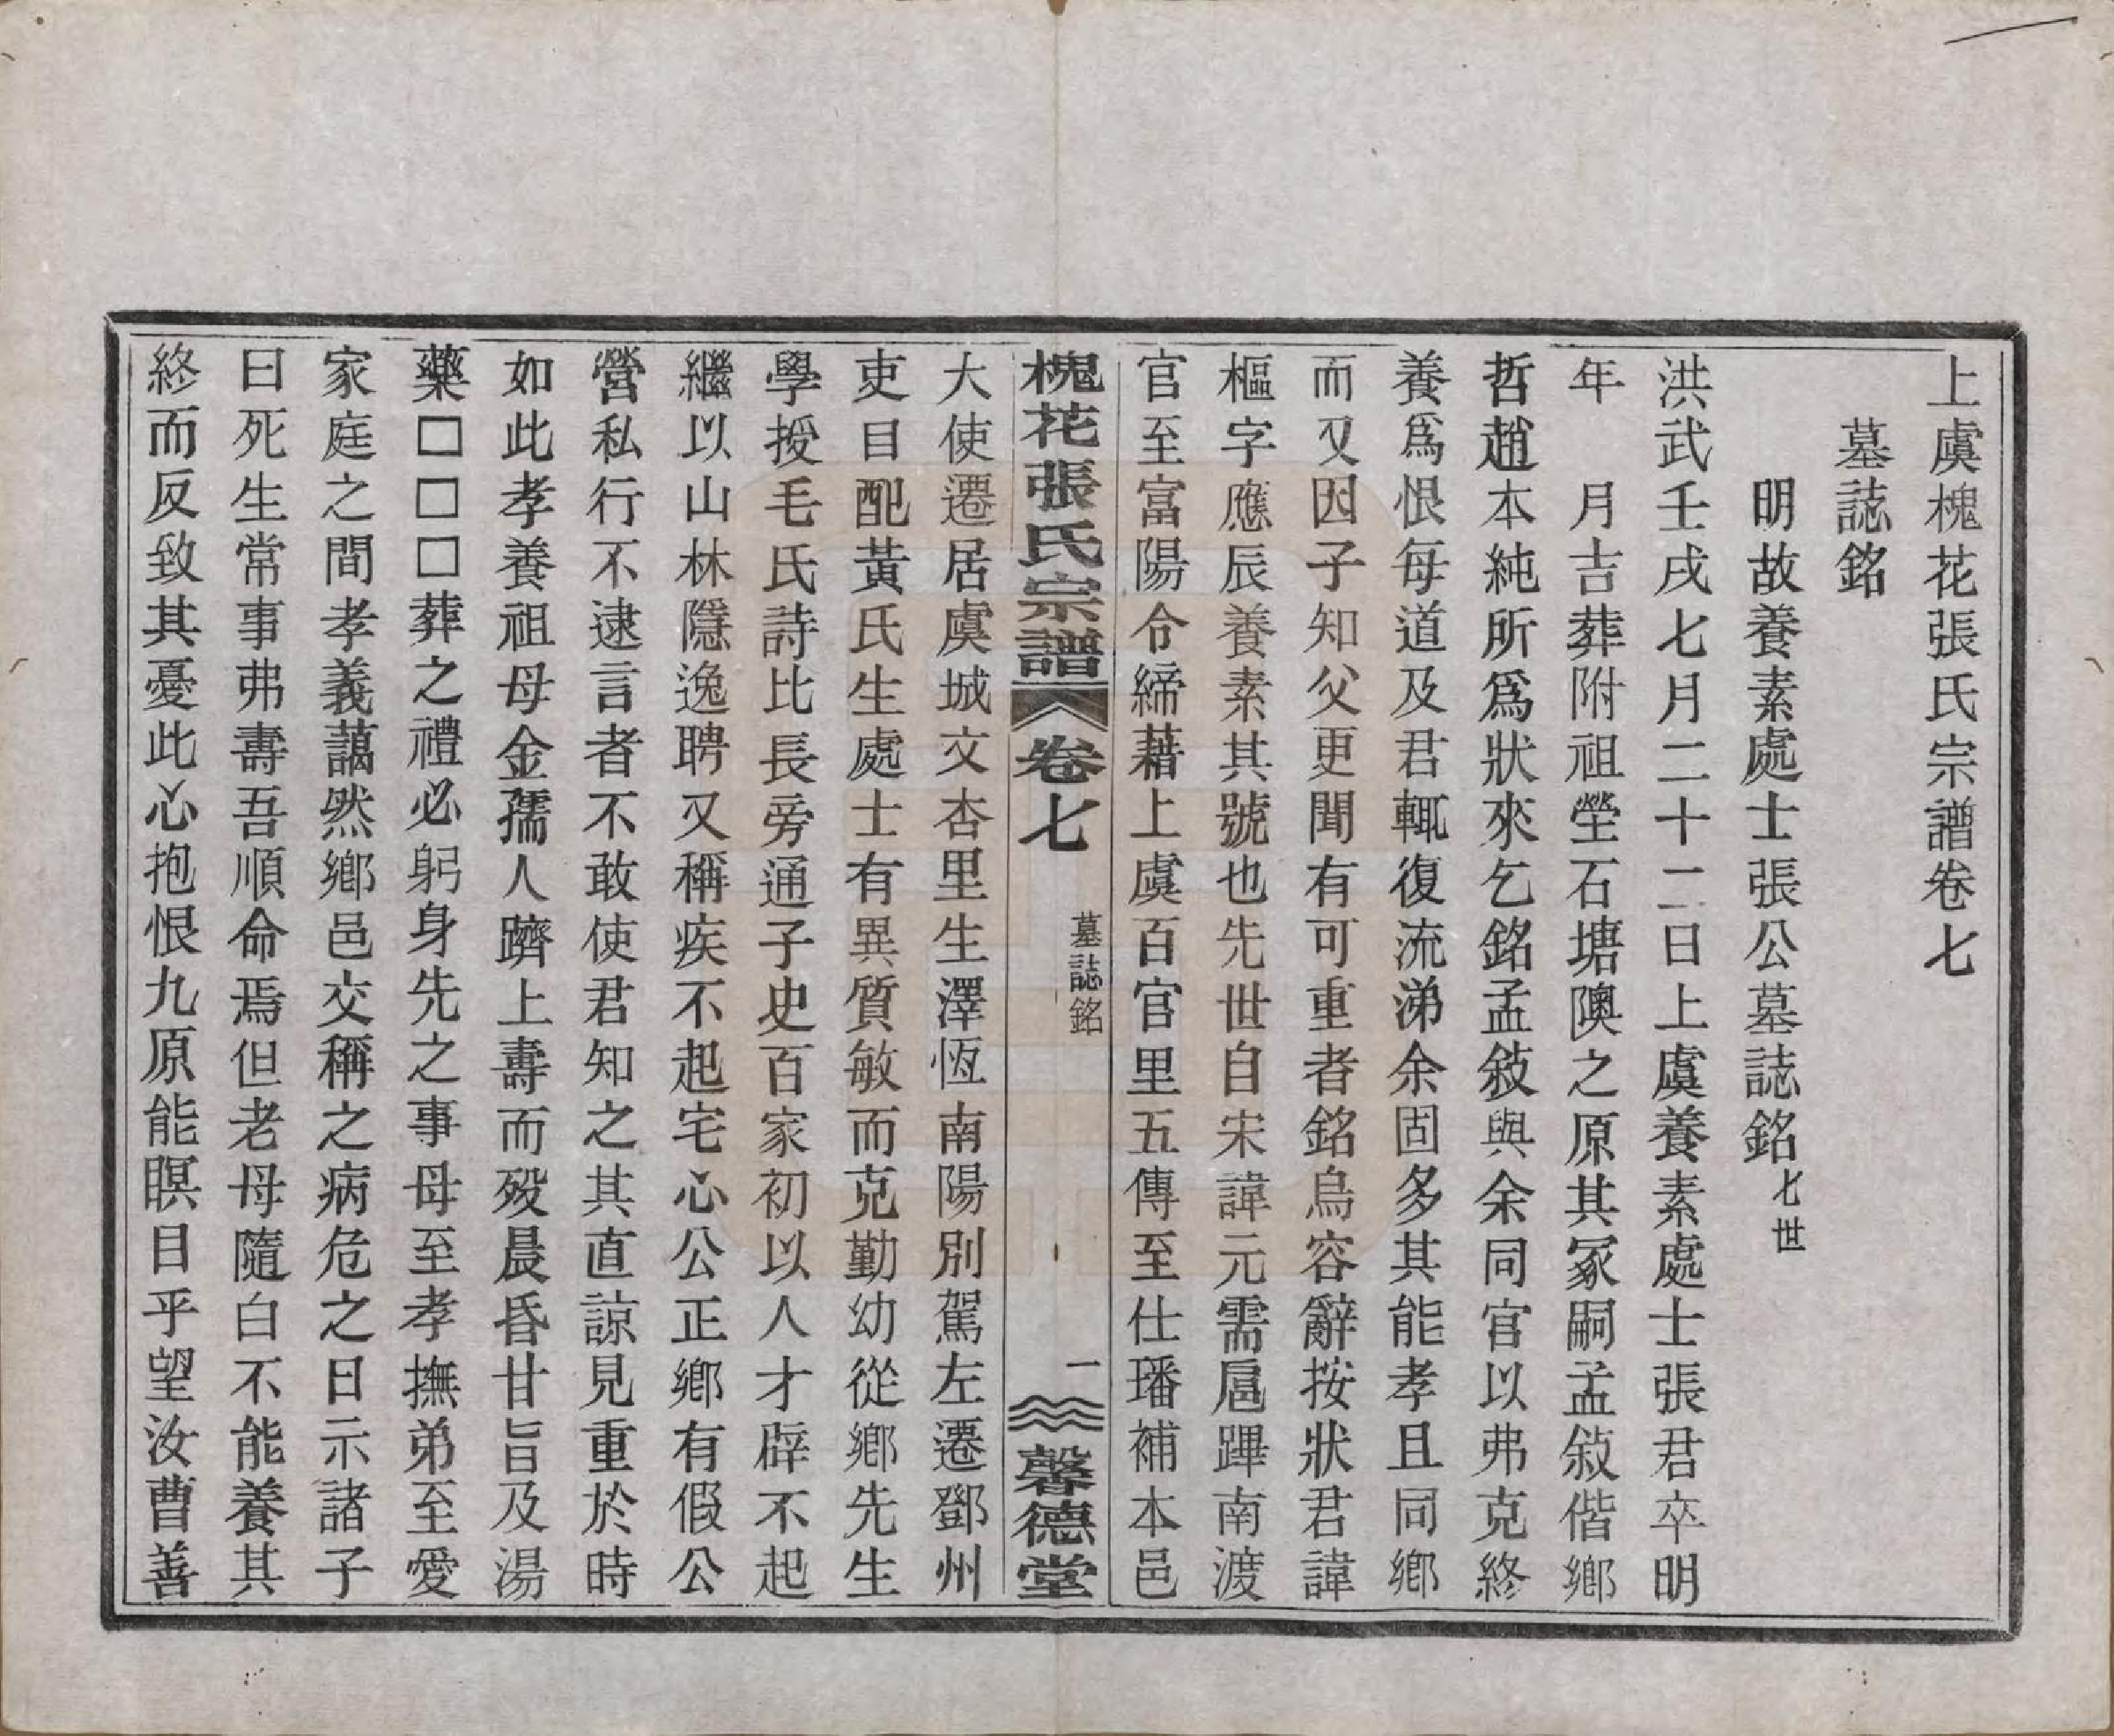 上虞槐花張氏宗譜卷七
墓誌銘
明故養素處士張公墓誌銘七世
洪武壬戌七月二十二日上虞養素處士張君卒明
年　月吉葬附祖塋石塘隩之原其冢嗣孟敍偕鄉
哲趙本純所爲狀來乞銘孟敍與余同官以弗克終
養爲恨每道及君輒復流涕余固多其能孝且同鄉
而又因子知父更聞有可重者銘烏容辭按狀君諱
樞字應辰養素其號也先世自宋諱元需扈蹕南渡
官至富陽令締藉上虞百官里五傳至仕璠補本邑
槐花張氏宗譜　卷七　墓誌銘　一　馨德堂
大使遷居虞城文杏里生澤恆南陽別駕左遷鄧州
吏目配黃氏生處士有異質敏而克勤幼從鄉先生
學授毛氏詩比長旁通子史百家初以人才辟不起
繼以山林隱逸聘又稱疾不起宅心公正鄉有假公
營私行不逮言者不敢使君知之其直諒見重於時
如此孝養祖母金孺人躋上壽而歿晨昏甘旨及湯
藥□□□葬之禮必躬身先之事母至孝撫弟至愛
家庭之間孝義藹然鄉邑交稱之病危之日示諸子
曰死生常事弗壽吾順命焉但老母隨白不能養其
終而反致其憂此心抱恨九原能瞑目乎望汝曹善